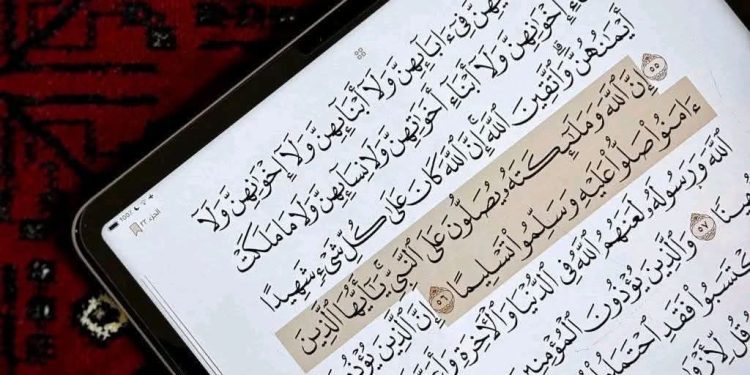 100%
الجزء ٢٢
فِىٓ ءَابَآئِهِنَّ وَلَآ أَبْنَآئِهِنَّ وَلَآ إِخْوَٰنِهِنَّ وَلَآ
إِخْوَٰنِهِنَّ وَلَآ أَبْنَآءِ أَخَوَٰتِهِنَّ وَلَا نِسَآئِهِنَّ وَلَا مَا مَلَكَتْ
أَيْمَٰنُهُنَّ وَٱتَّقِينَ ٱللَّهَ إِنَّ ٱللَّهَ كَانَ عَلَىٰ كُلِّ شَىْءٍ شَهِيدًا
٥٥ إِنَّ ٱللَّهَ وَمَلَٰٓئِكَتَهُۥ يُصَلُّونَ عَلَى ٱلنَّبِىِّ يَٰٓأَيُّهَا ٱلَّذِينَ
ءَامَنُوا۟ صَلُّوا۟ عَلَيْهِ وَسَلِّمُوا۟ تَسْلِيمًا ٥٦ إِنَّ ٱلَّذِينَ
ٱللَّهَ وَرَسُولَهُۥ لَعَنَهُمُ ٱللَّهُ فِى ٱلدُّنْيَا وَٱلْأَخِرَةِ
٥٧ وَٱلَّذِينَ يُؤْذُونَ ٱلْمُؤْمِنِينَ
فَقَدِ ٱحْتَمَلُوا۟
قُل